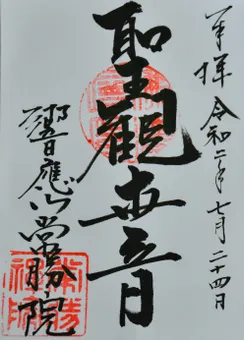 奉拝 令和二年七月二十四日
聖観世音
響應山常勝院